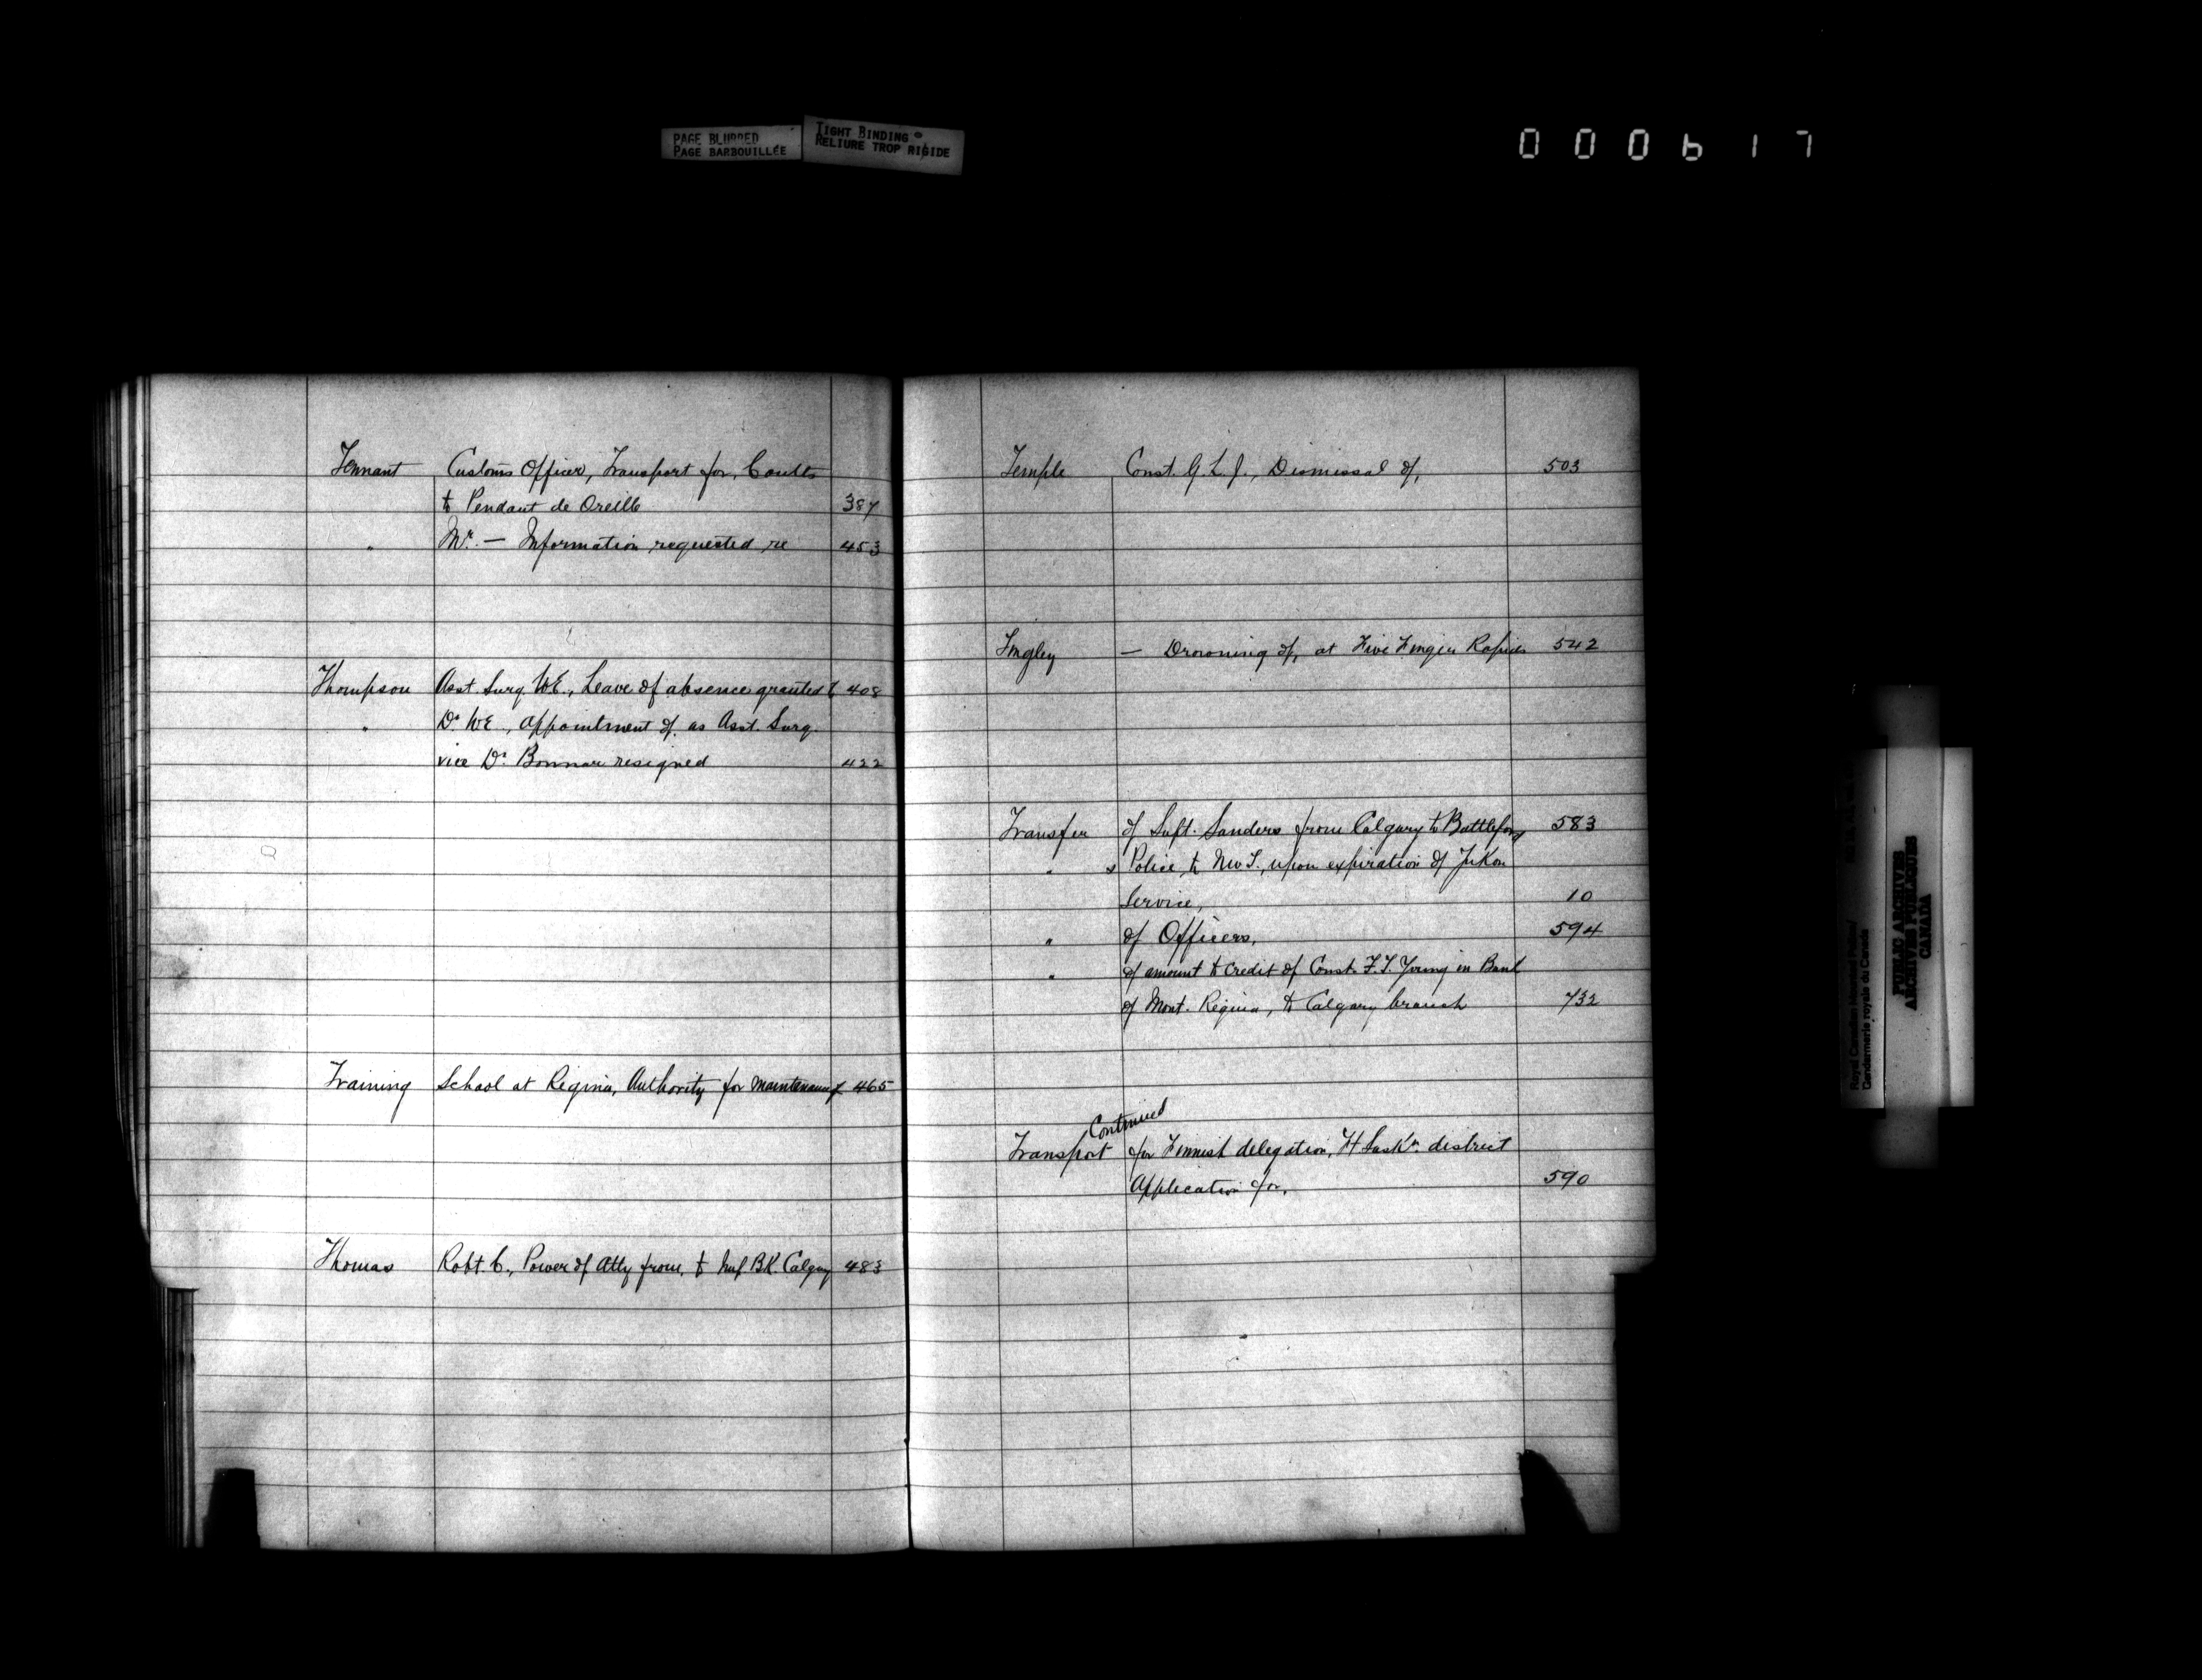 PAGE BLURRED
PAGE BARBOUILLÉE
TIGHT BINDING
RELIURE TROP RIGIDE
000617
Tennant Customs Officer, Transport for, Coutts
to Pendant de Oreille 387
" Mr. — Information requested re 453
Thompson Asst. Surg. W.E., Leave of absence granted to 408
" Dr. W.E., appointment of, as Asst. Surg.
vice Dr. Bonnar resigned 422
Training School at Regina, Authority for maintenance of 465
Thomas Robt. C., Power of Atty from, to BK. Calgary 483
Temple Const. G. L. J., Dismissal of, 503
Tingley — Drowning of, at Five Finger Rapids 542
Transfer of Supt. Sanders from Calgary to Battleford 583
" Police to N.W.T., upon expiration of Yukon
Service, 10
" of Officers, 594
" of amount to credit of Const. F. T. Young in Bank
of Mont. Regina, to Calgary branch 732
Continued
Transport for Finnish delegation, Sask'n. district
Application for, 590
Royal Canadian Mounted Police/
Gendarmerie royale du Canada
PUBLIC ARCHIVES
ARCHIVES PUBLIQUES
CANADA